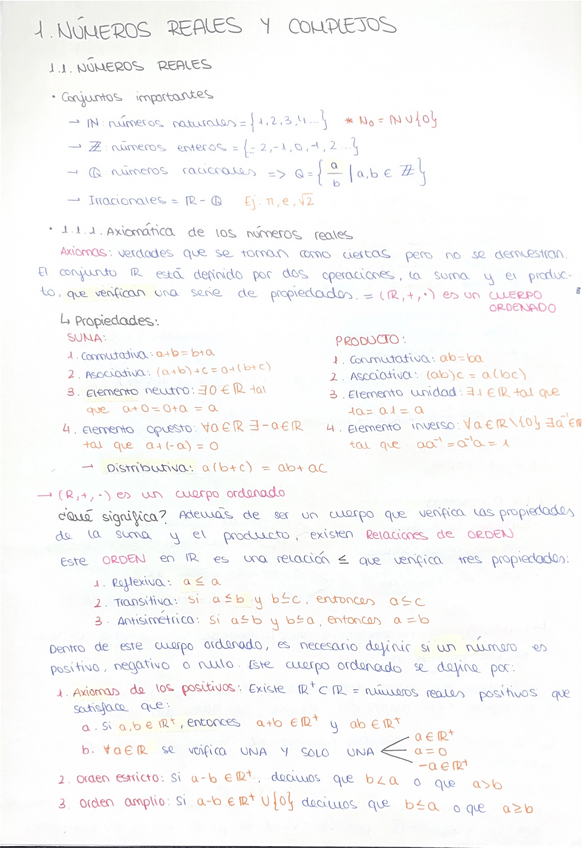 1. NÚMEROS REALES Y COMPLEJOS
1.1. NÚMEROS REALES
• Conjuntos importantes
→ ℕ: números naturales = {1,2,3,4...} * ℕ₀ = ℕ∪{0}
→ ℤ: números enteros = {-2,-1,0,-1,2...}
→ ℚ números racionales => Q = {a/b | a,b ∈ ℤ}
→ Irracionales = ℝ - ℚ Ej: π, e, √2
• 1.1.1. Axiomática de los números reales
Axiomas: verdades que se toman como ciertas pero no se demuestran.
El conjunto ℝ está definido por dos operaciones, la suma y el produc-
to, que verifican una serie de propiedades. = (ℝ,+,·) es un CUERPO
ORDENADO
↳ Propiedades:
SUMA:
1. Conmutativa: a+b=b+a
2. Asociativa: (a+b)+c=a+(b+c)
3. Elemento neutro: ∃0∈ℝ tal
que a+0=0+a=a
4. Elemento opuesto: ∀a∈ℝ ∃-a∈ℝ
tal que a+(-a)=0
PRODUCTO:
1. Conmutativa: ab=ba
2. Asociativa: (ab)c = a(bc)
3. Elemento unidad: ∃1∈ℝ tal que
1a = a1 = a
4. Elemento inverso: ∀a∈ℝ\{0} ∃a⁻¹∈ℝ
tal que aa⁻¹=a⁻¹a=1
→ Distributiva: a(b+c) = ab+ac
→ (ℝ,+,·) es un cuerpo ordenado
¿Qué significa? Además de ser un cuerpo que verifica las propiedades
de la suma y el producto, existen Relaciones de ORDEN
Este ORDEN en ℝ es una relación ≤ que verifica tres propiedades:
1. Reflexiva: a ≤ a
2. Transitiva: Si a≤b y b≤c, entonces a≤c
3. Antisimétrica: Si a≤b y b≤a, entonces a=b
Dentro de este cuerpo ordenado, es necesario definir si un número es
positivo, negativo o nulo. Este cuerpo ordenado se define por:
1. Axiomas de los positivos: Existe ℝ⁺⊂ℝ = números reales positivos que
satisface que:
a. Si a,b∈ℝ⁺, entonces a+b∈ℝ⁺ y ab∈ℝ⁺
b. ∀a∈ℝ se verifica UNA Y SOLO UNA
a∈ℝ⁺
a=0
-a∈ℝ⁺
2. Orden estricto: Si a-b∈ℝ⁺, decimos que b<a o que a>b
3. Orden amplio: Si a-b∈ℝ⁺∪{0} decimos que b≤a o que a≥b